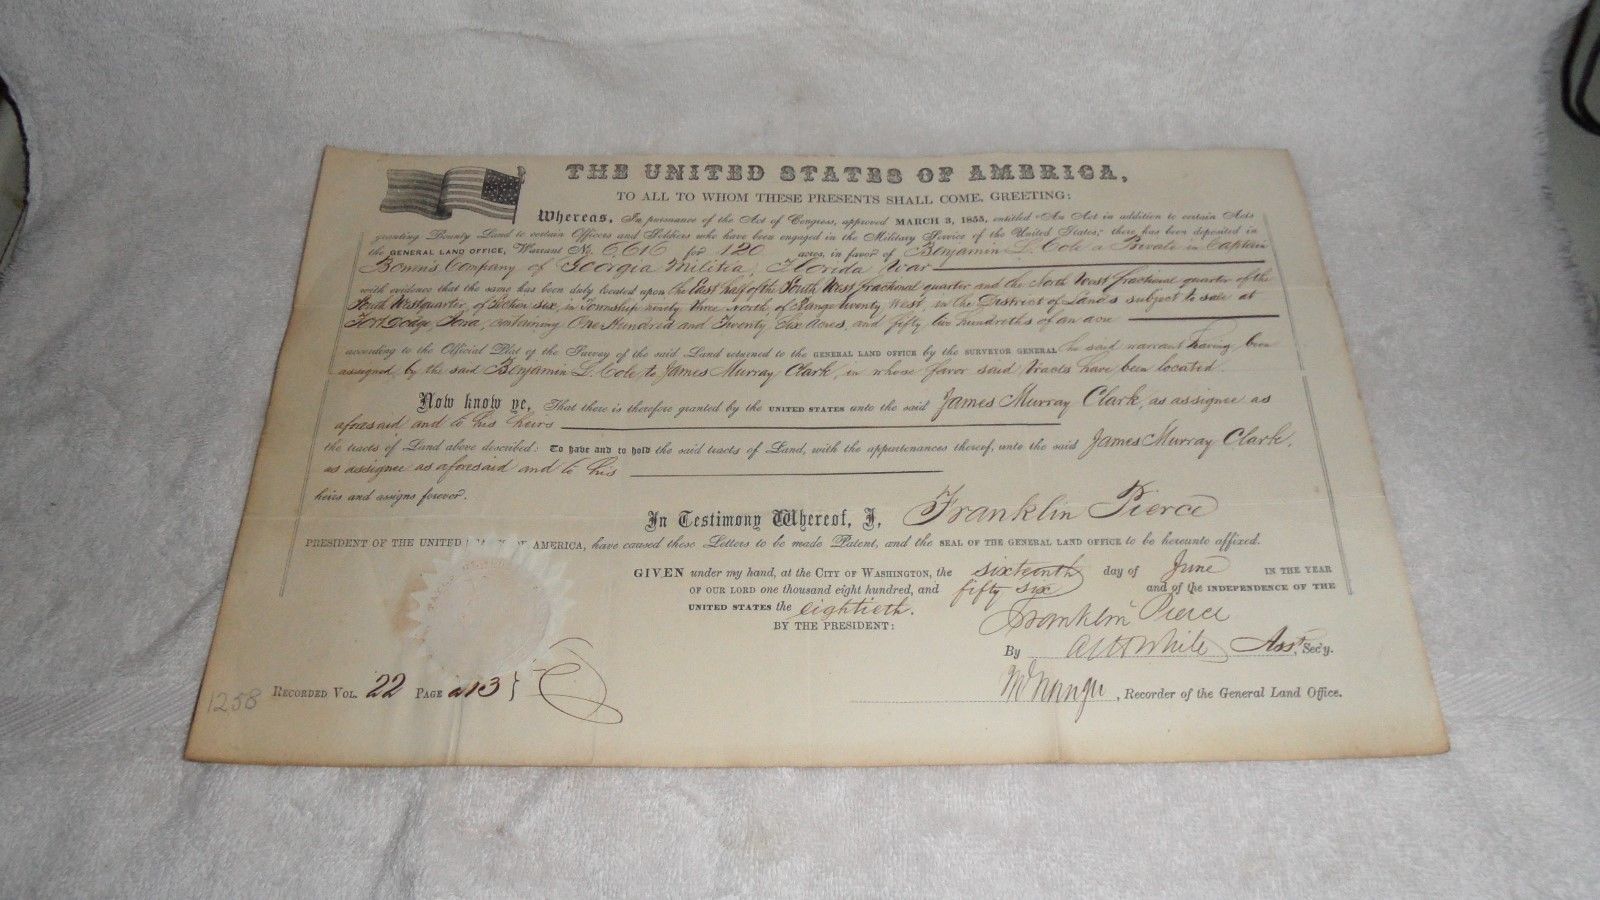 THE UNITED STATES OF AMERICA,
TO ALL TO WHOM THESE PRESENTS SHALL COME, GREETING:
Whereas, In pursuance of the Act of Congress, approved MARCH 3, 1855, entitled "An Act in addition to certain Acts
granting Bounty Land to certain Officers and Soldiers who have been engaged in the Military Service of the United States," there has been deposited in
the GENERAL LAND OFFICE, Warrant No. 6616 for 120 acres, in favor of Benjamin L. Cole a Private in Captain
Bowen's Company of Georgia Militia, Florida War
with evidence that the same has been duly located upon the East half of the South West fractional quarter and the North West fractional quarter of the
South West quarter, of Section six, in Township ninety three North, of Range twenty West, in the District of Lands subject to sale at
Fort Dodge, Iowa, containing One Hundred and Twenty Six Acres, and fifty two hundredths of an acre
according to the Official Plat of the Survey of the said Land returned to the GENERAL LAND OFFICE by the SURVEYOR GENERAL the said warrant having been
assigned by the said Benjamin L. Cole to James Murray Clark, in whose favor said tracts have been located.
Now know ye, That there is therefore granted by the UNITED STATES unto the said James Murray Clark, as assignee as
aforesaid and to his heirs
the tracts of Land above described: To have and to hold the said tracts of Land, with the appurtenances thereof, unto the said James Murray Clark,
as assignee as aforesaid and to his
heirs and assigns forever.
In Testimony Whereof, I, Franklin Pierce
PRESIDENT OF THE UNITED STATES OF AMERICA, have caused these Letters to be made Patent, and the SEAL OF THE GENERAL LAND OFFICE to be hereunto affixed.
GIVEN under my hand, at the CITY OF WASHINGTON, the sixteenth day of June IN THE YEAR
OF OUR LORD one thousand eight hundred, and fifty six and of the INDEPENDENCE OF THE
UNITED STATES the eightieth.
BY THE PRESIDENT: Franklin Pierce
By Asst. Sec'y.
RECORDED VOL. 22 PAGE 213
, Recorder of the General Land Office.
1258